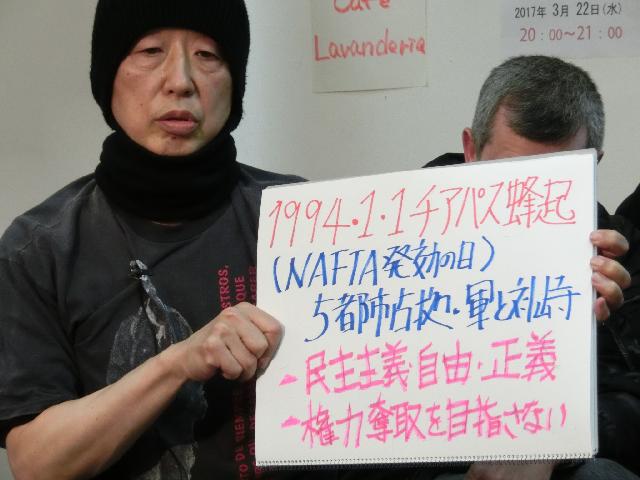 Café
Lavanderia
2017年 3月 22日(水)
20:00～21:00
1994.1.1チアパス蜂起
(NAFTA発効の日)
5都市占拠。軍と衝突
-民主主義・自由・正義
-権力奪取を目指さない
STROS,
QUE